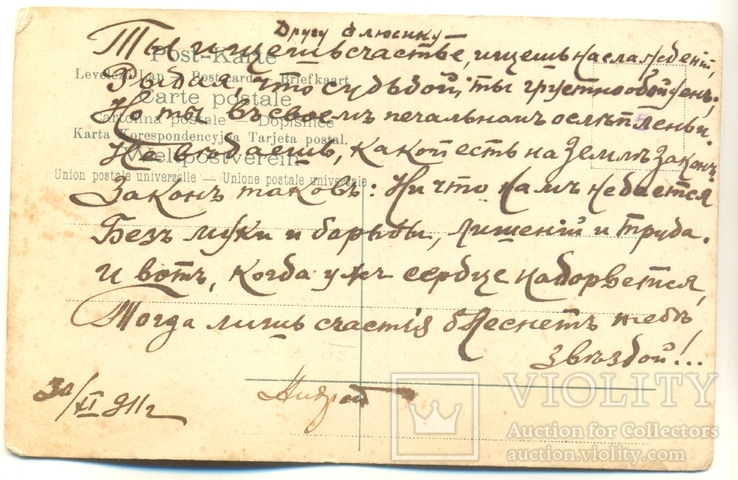 Другу Блюсику
Ты ищешь счастье, ищешь наслажденій,
Рыдая, что судьбой, ты грустно обойденъ;
Но ты въ своемъ печальномъ ослѣпленьи
Не вѣдаешь, какой есть на землѣ законъ.
Законъ таковъ: Ничто намъ не дается
Безъ муки и борьбы, лишеній и труда.
И вотъ, когда ужъ сердце надорвется,
Тогда лишь счастія блеснетъ тебѣ
звѣздой!...
30/XI 911 г
Андрей
Post-Karte
Levelező Lap — Postcard — Briefkaart
Carte postale
Cartolina postale — Dopisnice
Karta Korespondencyjna Tarjeta postal.
Weltpostverein
Union postale universelle — Unione postale universale
VIOLITY
Auction for Collectors
auction.violity.com